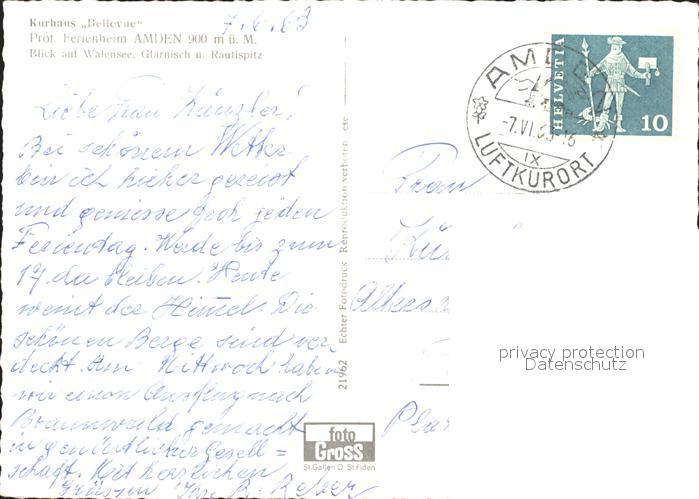 Kurhaus „Bellevue"
Prot. Ferienheim AMDEN 900 m ü. M.
Blick auf Walensee, Glärnisch u. Rautispitz
7.6.63
Liebe Frau Künzler!
Bei schönem Wetter
bin ich hieher gereist
und geniesse froh jeden
Ferientag. Werde bis zum
17. da bleiben. Heute
weint der Himmel. Die
schönen Berge sind ver
deckt. Am Mittwoch haben
wir einen Ausflug nach
Braunwald gemacht
in gemütlicher Gesell=
schaft. Mit herzlichen
Grüssen Ihre
21962 Echter Fotodruck Reproduktion verboten
foto
GROSS
St.Gallen O St.Fiden
HELVETIA
10
AMDEN
-7.VI.63-16
IX
LUFTKURORT
Frau
Kü
Pfar
privacy protection
Datenschutz